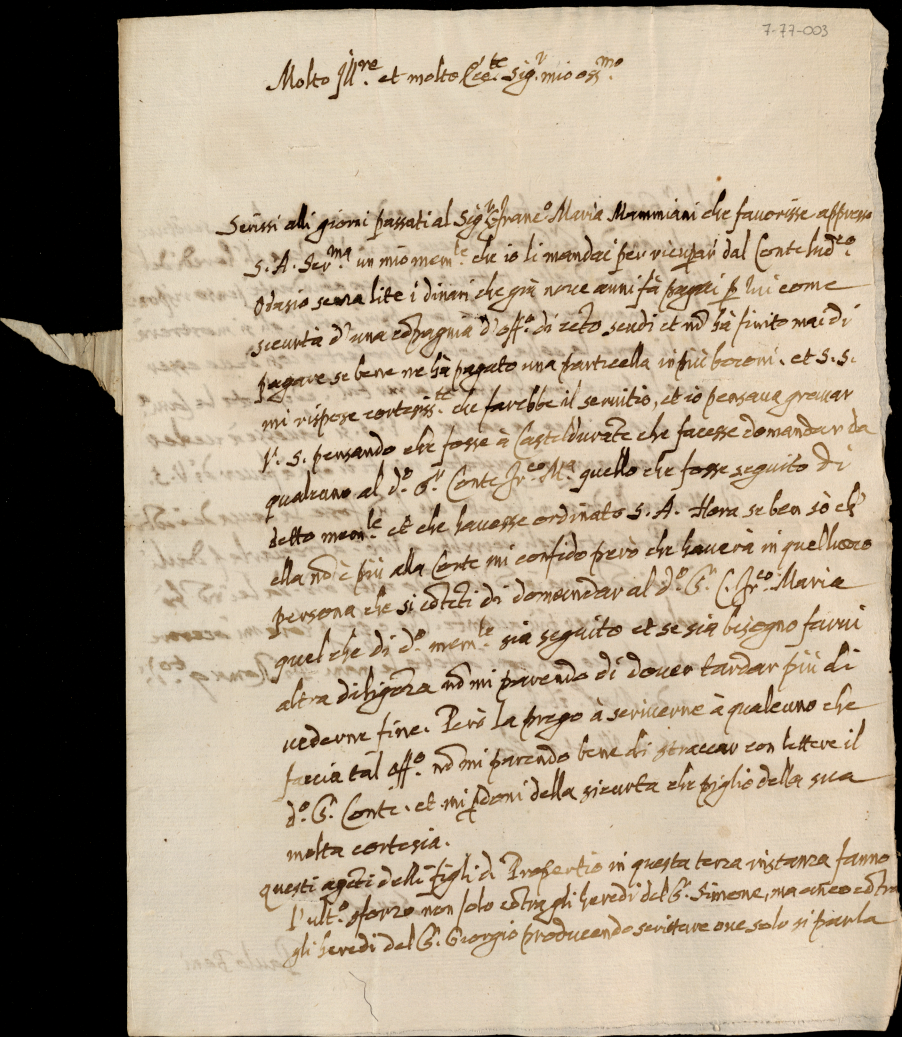 7-77-003
Molto Ill.re et molto Ecc.te Sig.r mio oss.mo
Scrissi alli giorni passati al Sig.r C. Franc.o Maria Mammiani che favorisse appresso
S. A. Ser.ma un mio mem.le che io li mandai per ricuperar dal Conte Lud.co
Odasio senza lite i dinari che già nove anni fà pagai p lui come
sicurtà d'una cõpagnia d'off.o di cẽto scudi et nõ hà finito mai di
pagare se bene ne hà pagato una particella in più boconi. et S. S.
mi rispose cortesiss.te che farebbe il servitio, et io pensava gravar
V. S. pensando che fosse à Casteldurãte che facesse domandar da
qualcuno al d.o S.r Conte Fr.co M.a quello che fosse seguito di
detto mem.le et che havesse ordinato S. A. Hora se ben sò ch'
ella nõ è più alla Corte mi confido però che haverà in quel luoco
persona che si cõtẽti di domandar al d.o S.r C. Fr.co Maria
quel che di d.o mem.le sia seguito et se sia bisogno farvi
altra diligẽza nõ mi parendo di dover tardar più di
vederne fine. Però la prego à scriverne à qualcuno che
faccia tal off.o nõ mi parendo bene di straccar con lettere il
d.o S.r Conte. et mi pdoni della sicurta che piglio della sua
molta cortesia.
Questi agẽti delli figli di Propertio in questa terza instanza fanno
l'ult.o sforzo non solo cõtra gli heredi del S.r Simone, ma anco cõtra
gli heredi del S.r Giorgio producendo scritture ove solo si parla